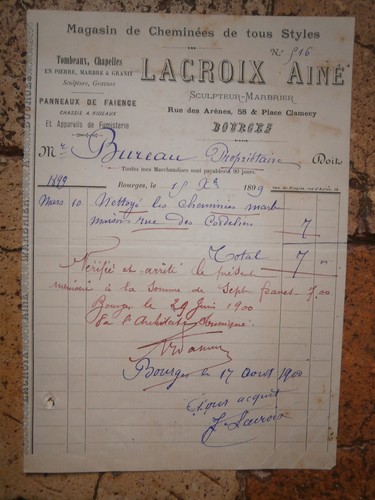 Magasin de Cheminées de tous Styles
N° 516
Tombeaux, Chapelles
EN PIERRE, MARBRE & GRANIT
Sculpture, Gravure
PANNEAUX DE FAIENCE
CHASSIS A RIDEAUX
Et Appareils de Fumisterie
LACROIX AINÉ
SCULPTEUR-MARBRIER
Rue des Arènes, 58 & Place Clamecy
BOURGES
Mr Bureau Propriétaire Doit
Toutes mes Marchandises sont payables à 90 jours.
Bourges, le 15 Xbre 1899
1899
Mars 10 Nettoyé les cheminées marb
maison rue des Cordeliers 7
Total 7
Vérifié et arrêté le présent
mémoire à la somme de Sept francs 7.00
Bourges le 29 Juin 1900
L'Architecte soussigné
Bourges le 17 aout 1900
Pour acquit
J. Lacroix